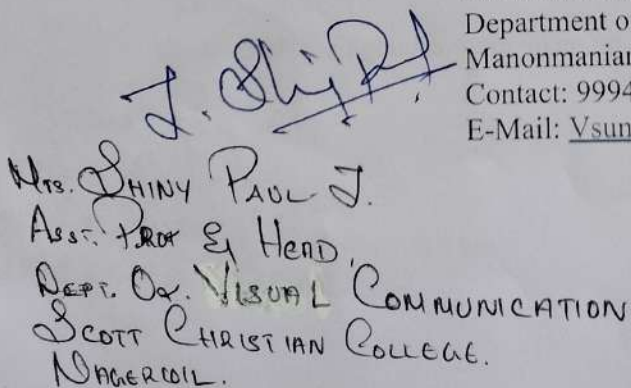 Department o
Manonmanian
Contact: 9994
E-Mail: Vsun
J. Shiny Paul
Mrs. SHINY PAUL J.
ASST. PROF & HEAD,
DEPT. OF. VISUAL COMMUNICATION
SCOTT CHRISTIAN COLLEGE.
NAGERCOIL.